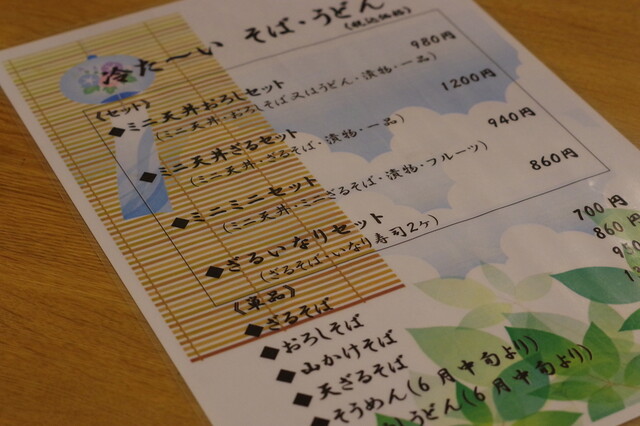 冷た〜い そば・うどん
(税込価格)
《セット》
◆ミニ天丼おろしセット 980円
(ミニ天丼・おろしそば又はうどん・漬物・一品)
◆ミニ天丼ざるセット 1200円
(ミニ天丼・ざるそば・漬物・一品)
◆ミニミニセット 940円
(ミニ天丼・ミニざるそば・漬物・フルーツ)
◆ざるいなりセット 860円
(ざるそば・いなり寿司2ヶ)
《単品》
◆ざるそば 700円
◆おろしそば 860円
◆山かけそば
◆天ざるそば
◆そうめん(6月中旬より)
うどん(6月中旬より)